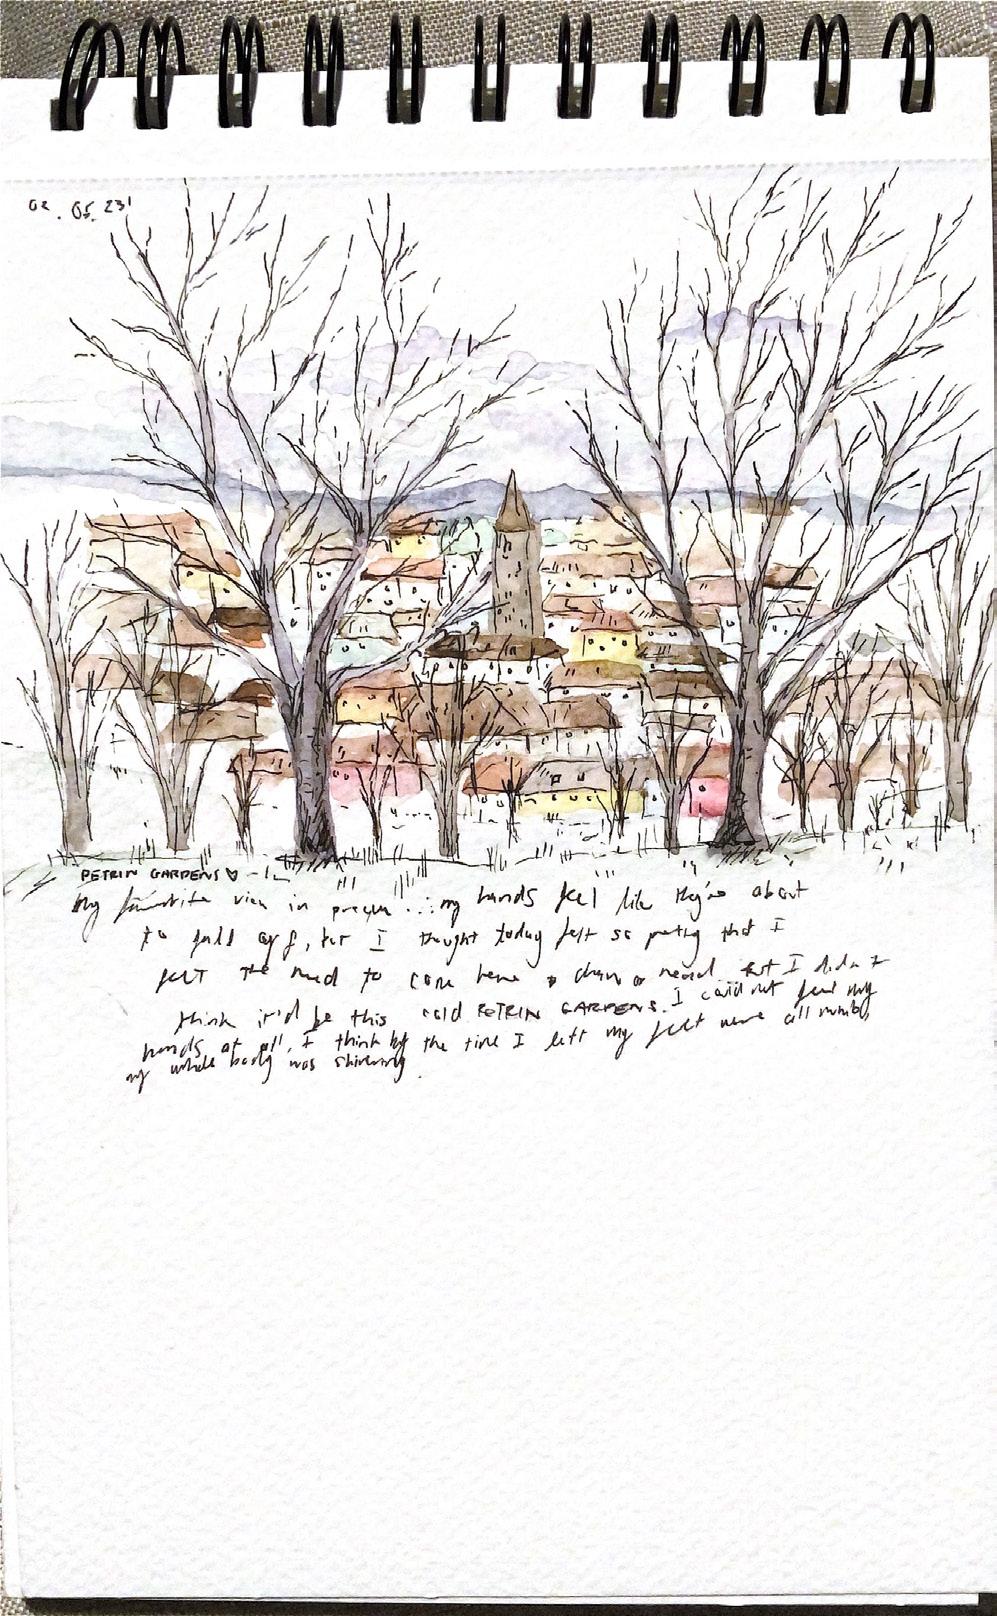 02. 05. 23'
PETRIN GARDENS ♡
My favourite view in prague... my hands feel like they're about
to fall off, but I thought today felt so pretty that I
felt the need to come here & draw or read but I didn't
think it'd be this cold PETRIN GARDENS. I could not feel my
hands at all, I think by the time I left my feet were all numb,
my whole body was shivering.